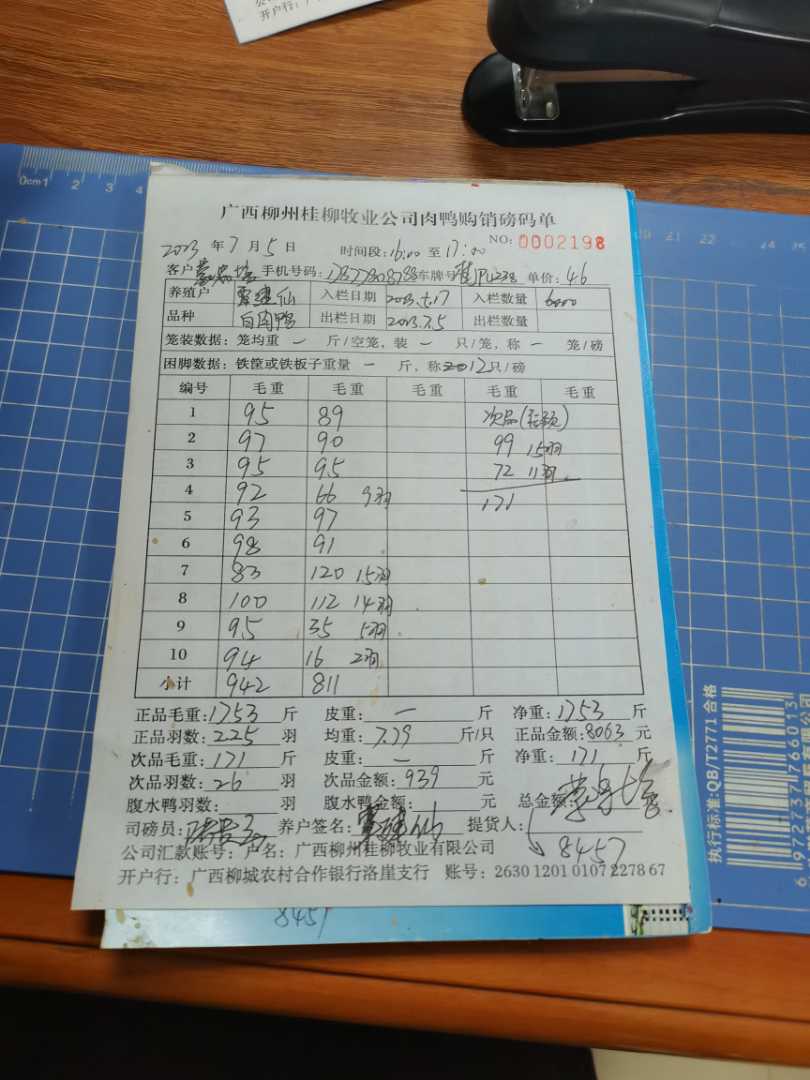 开户行:
0cm1 2 3 4
广西柳州桂柳牧业公司肉鸭购销磅码单
NO: 0002198
2023 年 7 月 5 日 时间段: 16:00 至 17:00
客户 手机号码: 车牌号 单价: 4.6
养殖户 入栏日期 2023.5.17 入栏数量 6000
品种 白肉鸭 出栏日期 2023.7.5 出栏数量
笼装数据: 笼均重 一 斤/空笼, 装 一 只/笼, 称 一 笼/磅
困脚数据: 铁筐或铁板子重量 一 斤, 称 12只/磅
编号 毛重 毛重 毛重 毛重 毛重
1 95 89 次品
2 97 90 99 15羽
3 95 95 72 11羽
4 92 66 9羽 171
5 93 97
6 98 91
7 83 120 15羽
8 100 112 14羽
9 95 35 5羽
10 94 16 2羽
小计 942 811
正品毛重: 1753 斤 皮重: 一 斤 净重: 1753 斤
正品羽数: 225 羽 均重: 7.79 斤/只 正品金额: 8063 元
次品毛重: 171 斤 皮重: 一 斤 净重: 171 斤
次品羽数: 26 羽 次品金额: 939 元
腹水鸭羽数: 羽 腹水鸭金额: 元 总金额:
司磅员: 养户签名: 提货人:
8457
公司汇款账号: 户名: 广西柳州桂柳牧业有限公司
开户行: 广西柳城农村合作银行洛崖支行 账号: 2630 1201 0107 2278 67
8457
执行标准:QB/T2771 合格
6972737766013